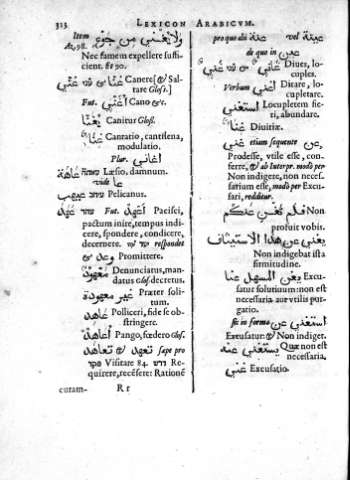 313 LEXICON ARABICVM.
Item ولا يغني من جوع
Az, 98. Nec famem expellere suffi-
cient. & 90.
غنى & غنا Canere [& Sal-
tare Gloss.]
Fut. أغني Cano &c.
يغنا Canitur Gloss.
غنا Cantatio, cantilena,
modulatio.
Plur. أغاني
عاهة Læsio, damnum.
vide عا
عيهب Pelicanus.
عهد Fut. أعهد Pacisci,
pactum inire, tempus indi-
cere, spondere, condicere,
decernere. respondet
& وعد Promittere.
معهود Denunciatus, man-
datus Glos. decretus.
غير معهودة Præter soli-
tum.
عاهد Polliceri, fide se ob-
stringere.
أعاهد Pango, fœdero Glos.
تعاهد & تعهد sæpe pro
פקד Visitare 84. דרש Re-
quirere, recēsere: Rationē
curam- R r
pro quo dii عنة vel عينة
de quo in عين
غني & غاني Diues, lo-
cuples.
Verbum أغنى Ditare, lo-
cupletare.
استغنى Locupletem fie-
ri, abundare.
غنا Diuitiæ.
غنى etiam sequente عن,
Prodesse, vtile esse, con-
ferre, & ab Interpr. modò per
Non indigere, non neces-
sarium esse, modò per Excu-
sari, redditur.
فلم تغن عنكم Non
profuit vobis.
يغني عن هذا الاستيثاق
Non indigebat ista
firmitudine.
يغن المسهل عنا Excu-
satur solutiuum: non est
necessaria aut vtilis pur-
gatio.
sic in forma استغنى عن
Excusatur: & Non indiget.
يستغنى عنه Quæ non est
necessaria.
غنى Excusatio.